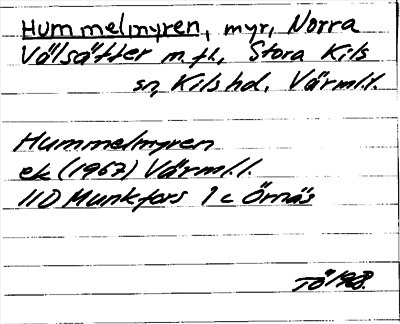 Hummelmyren, myr, Norra
Välsätter m.fl., Stora Kils
sn, Kils hd. Värml.l.
Hummelmyren
ek (1967) Värml.l.
11D Munkfors 1c Örnäs